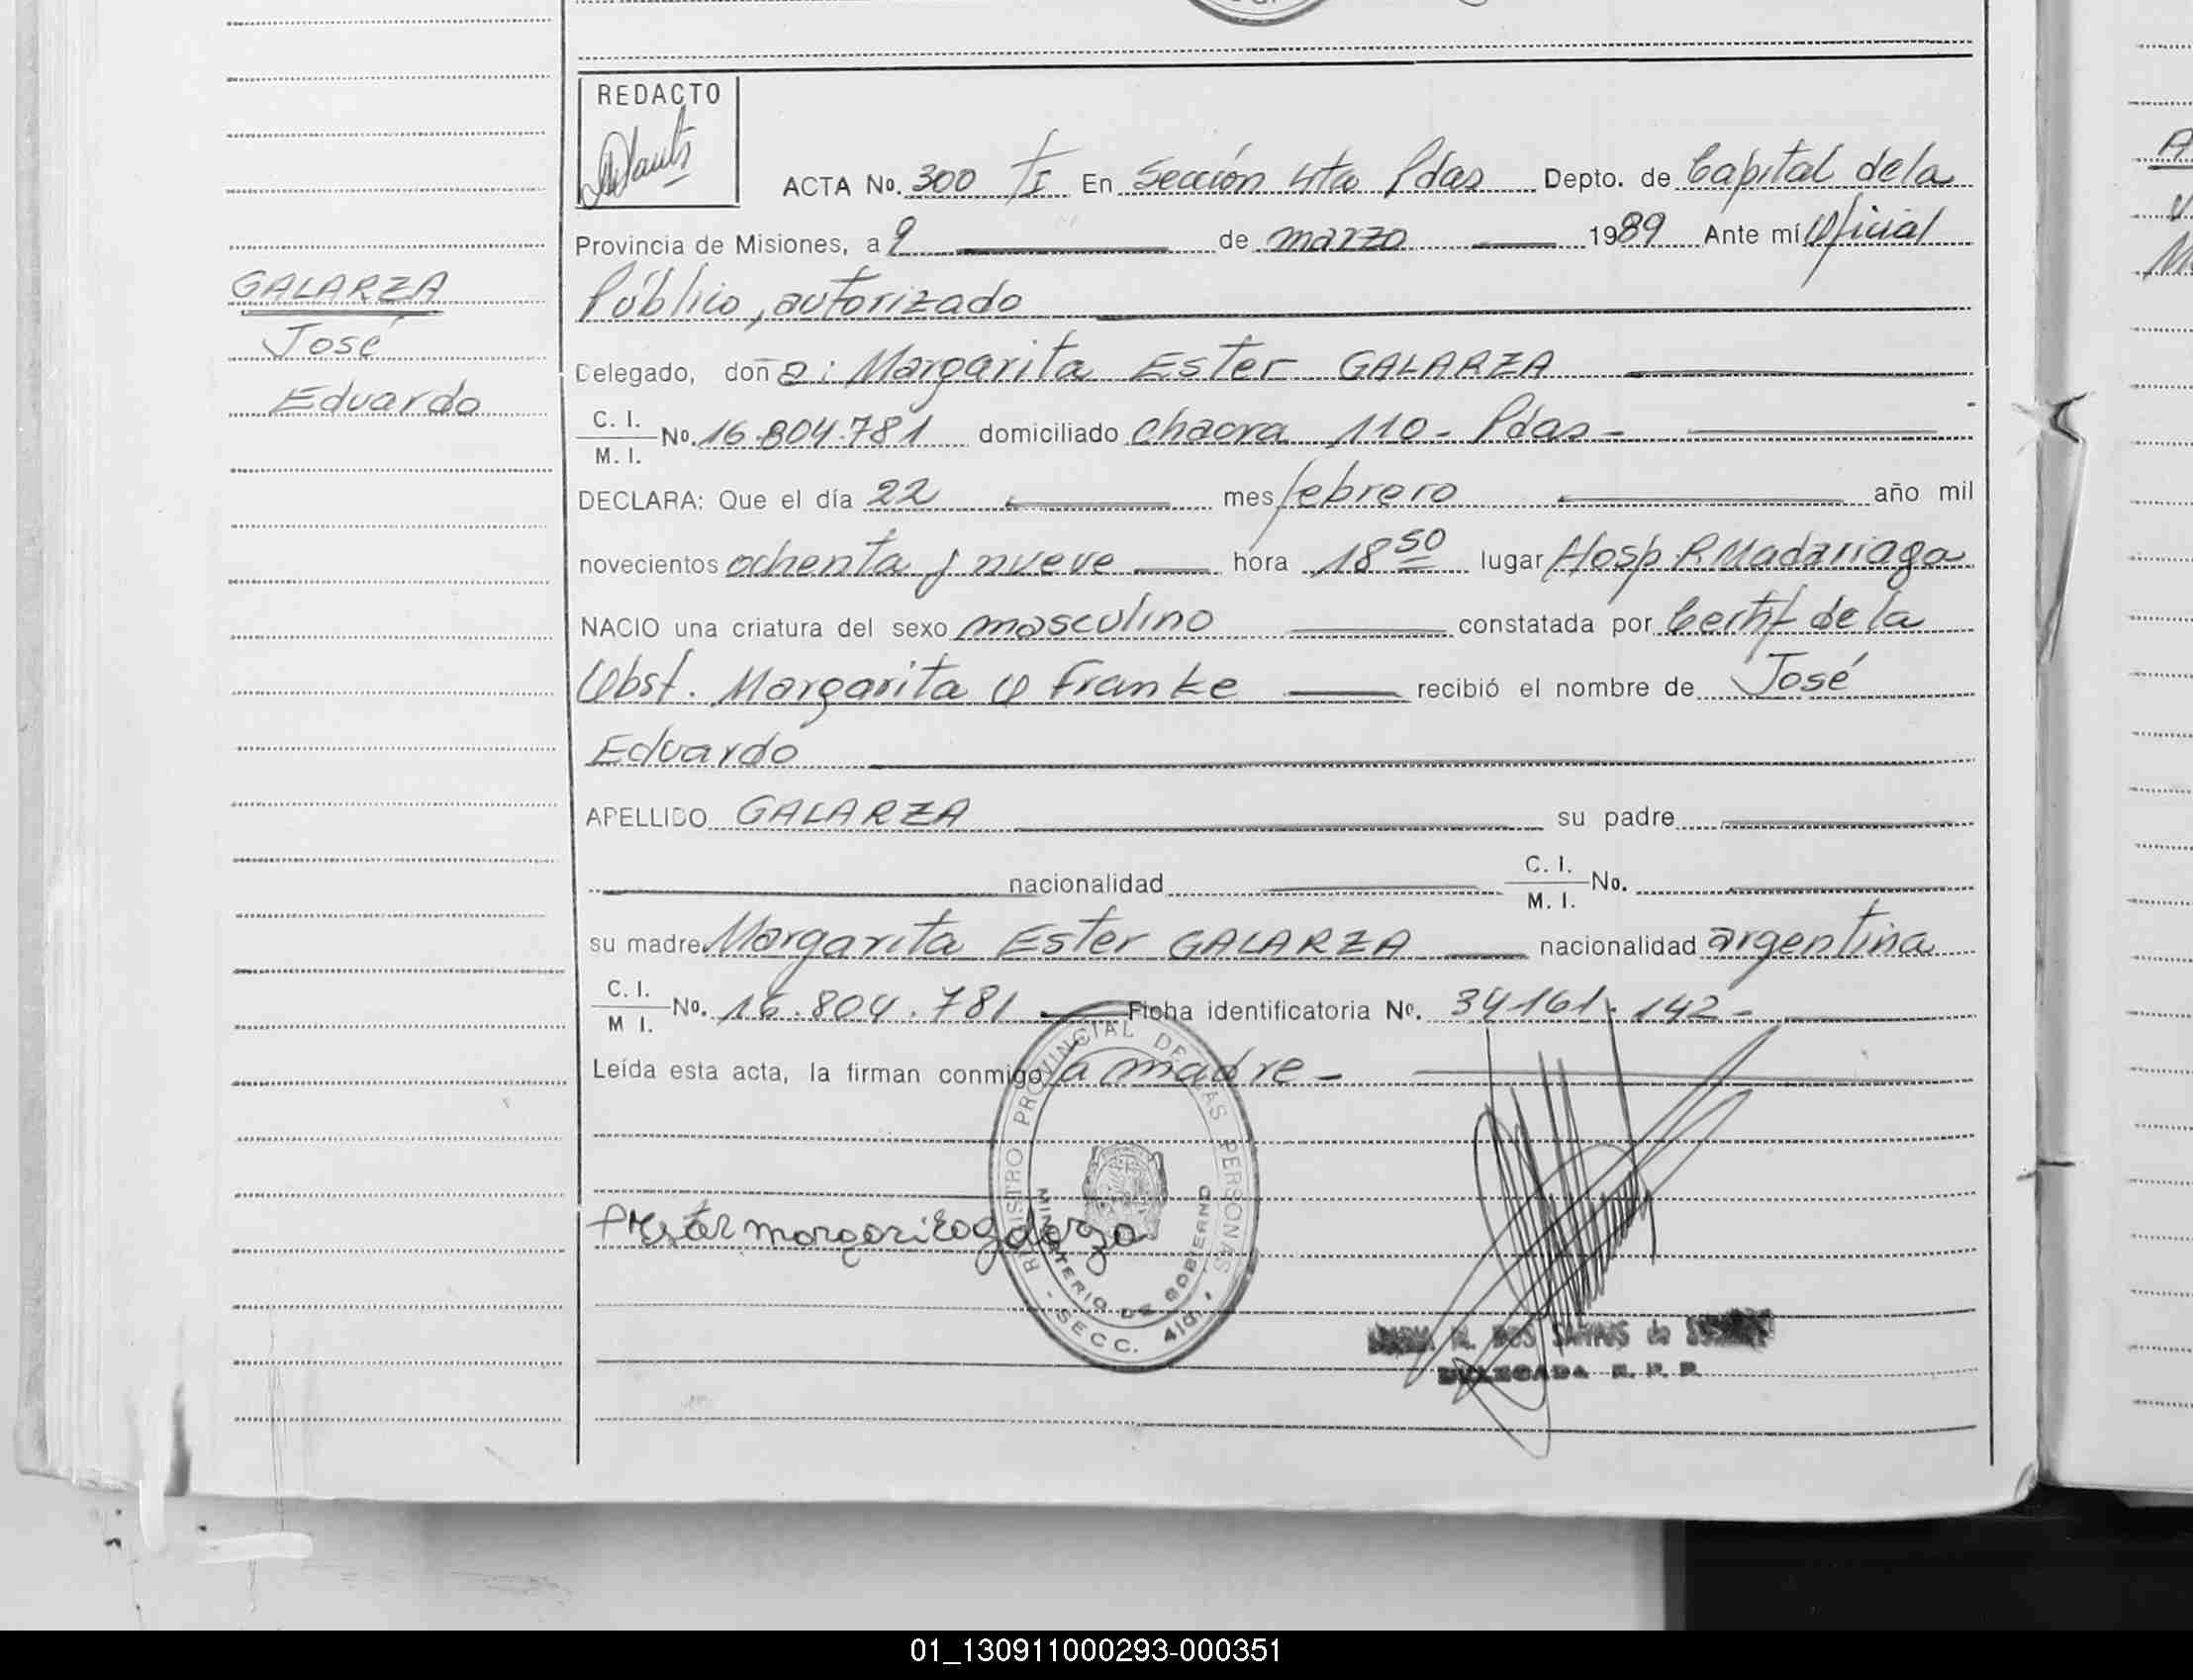 REDACTO
ACTA No. 300 TI En Sección 4ta Pdas Depto. de Capital de la
Provincia de Misiones, a 9 de marzo 1989 Ante mí Oficial
Público, autorizado
GALARZA
José
Eduardo
Delegado, doña: Margarita Ester GALARZA
C. I.
M. I. No. 16.804.781 domiciliado chacra 110 - Pdas -
DECLARA: Que el día 22 mes febrero año mil
novecientos ochenta y nueve hora 18 50 lugar Hosp. R Madariaga
NACIO una criatura del sexo masculino constatada por Certif de la
Obst. Margarita O Franke recibió el nombre de José
Eduardo
APELLIDO GALARZA su padre
nacionalidad C. I. M. I. No.
su madre Margarita Ester GALARZA nacionalidad argentina
C. I.
M I. No. 16.804.781 Ficha identificatoria No. 34161.142-
Leída esta acta, la firman conmigo la madre -
REGISTRO PROVINCIAL DE LAS PERSONAS
MINISTERIO DE GOBIERNO
- SECC. 4ta. -
Ester margarita galarza
M. DOS SANTOS de
DELEGADA R. P. P.
01_130911000293-000351